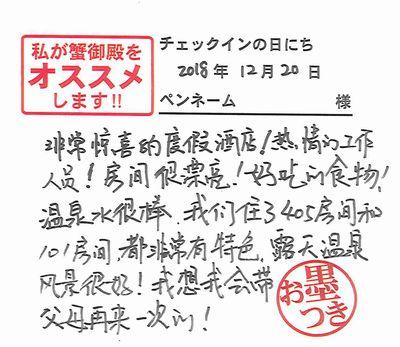 私が蟹御殿を
オススメ
します!!
チェックインの日にち
2018年 12月 20日
ペンネーム 様
非常惊喜的度假酒店!热情的工作
人员!房间很漂亮!好吃的食物!
温泉水很棒.我们住了405房间和
101房间,都非常有特色.露天温泉
风景很好!我想我会带
父母再来一次的!
お墨
つき